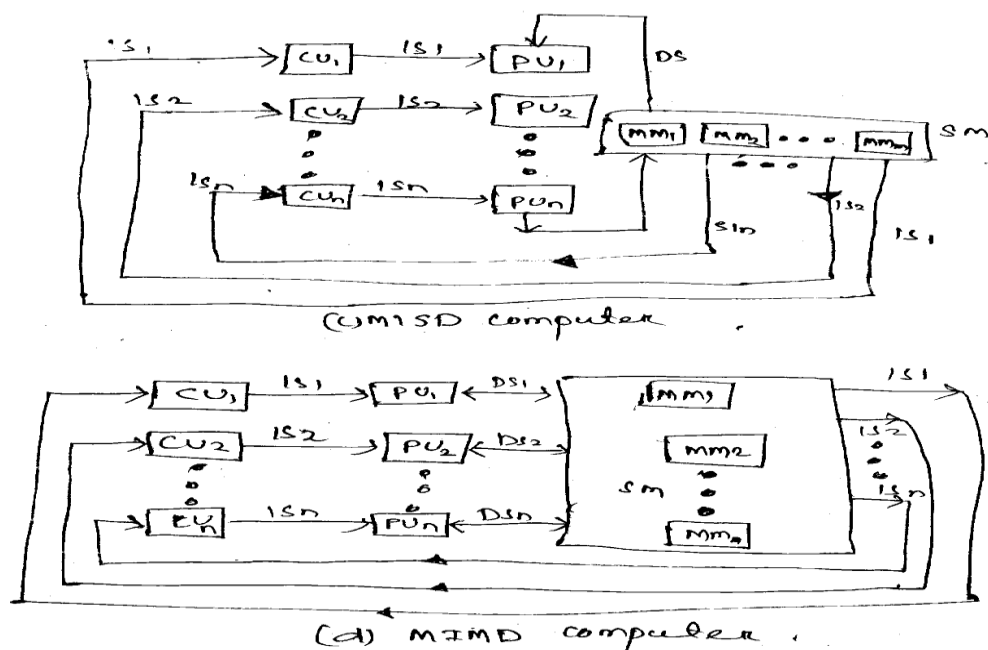 IS1 CU1 IS1 PU1 DS
IS2 CU2 IS2 PU2
MM1 MM2 MMm SM
ISn CUn ISn PUn
SIn IS2 IS1
(c) MISD computer
CU1 IS1 PU1 DS1 MM1 IS1
CU2 IS2 PU2 DS2 MM2 IS2
SM
CUn ISn PUn DSn MMn ISn
(d) MIMD computer.